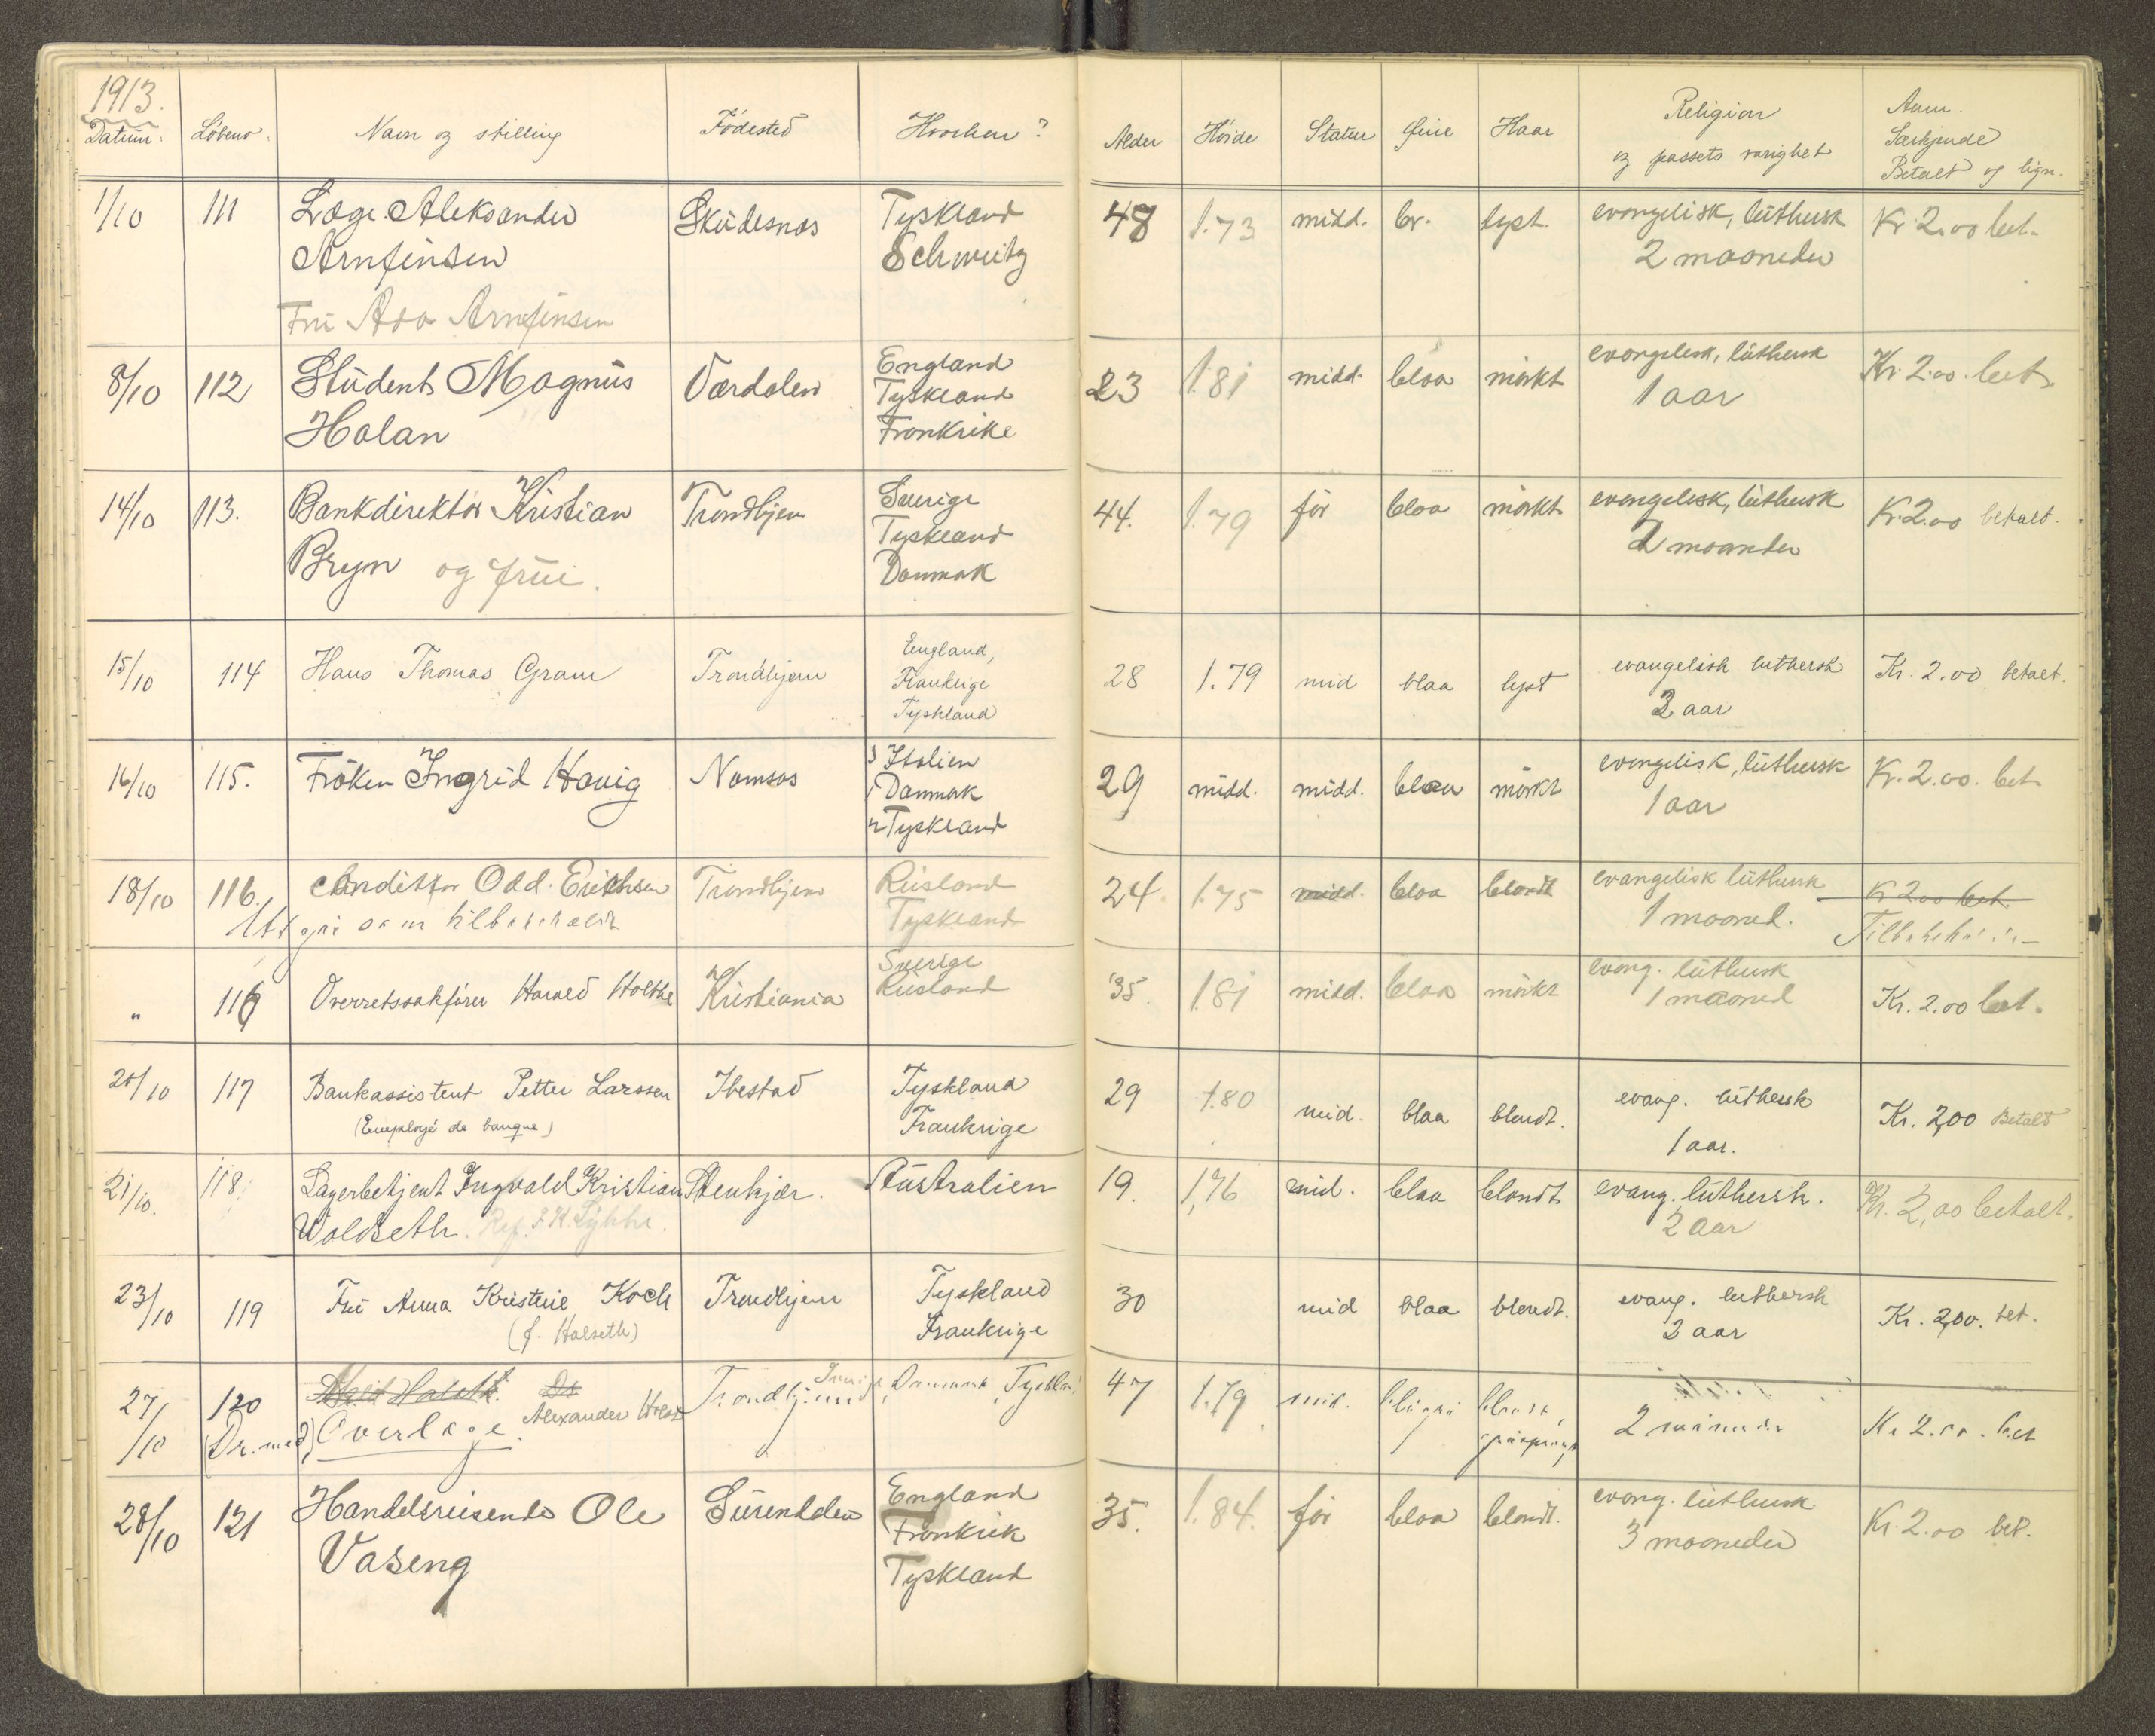 1913.
Datum: Löbeno. Navn og stilling Födested Hvorhen? Alder Höide Statur Öine Haar Religion og passets varighet Anm. Særkjende Betalt og lign.
1/10 111 Læge Aleksander Skudesnæs Tyskland 48 1.73 midd. br. lyst. evangelisk, luthersk Kr. 2.00 bet.
Arnfinsen Schweitz 2 maaneder
Fru Asa Arnfinsen
8/10 112 Student Magnus Værdalen England 23 1.81 midd. blaa mörkt evangelisk, luthersk Kr. 2.00. bet.
Halan Tyskland 1 aar
Frankrike
14/10 113. Bankdirektör Kristian Trondhjem Sverige 44. 1.79 för blaa mörkt evangelisk, luthersk Kr. 2.00 betalt.
Bryn og frue. Tyskland 2 maaneder
Danmark
15/10 114 Hans Thomas Gram Trondhjem England, 28 1.79 mid blaa lyst evangelisk luthersk Kr. 2.00 betalt.
Frankrige 3 aar
Tyskland
16/10 115. Fröken Ingrid Havig Namsos 3 Italien 29 midd. midd. blaa mörkt evangelisk, luthersk Kr. 2.00. bet.
1 Danmark 1 aar
2 Tyskland
18/10 116. Konditor Odd. Erichsen Trondhjem Rusland 24. 1.75 midd. blaa blondt evangelisk luthersk Kr 2.00 bet.
tilbakekaldt Tyskland 1 maaned.
" 116 Overretssakförer Harald Holthe Kristiania Sverige 35. 1.81 midd. blaa mörkt evang. luthersk Kr. 2.00 bet.
Rusland 1 maaned
20/10 117 Bankassistent Petter Larssen Ibestad Tyskland 29 1.80 mid. blaa blondt. evang. luthersk Kr. 2,00 Betalt
(Employé de banque) Frankrige 1 aar.
21/10. 118. Lagerbetjent Ingvald Kristian Stenkjær. Australien 19. 1,76 mid. blaa blondt evang. luthersk. Kr. 2,00 betalt.
Woldseth. Ref. 2 aar
23/10 119 Fru Anna Kristine Koch Trondhjem Tyskland 30 mid blaa blondt. evang. luthersk Kr. 2,00. bet.
(f. Halseth) Frankrige 2 aar
27/10 120 Dr Trondhjem Sverige, Danmark, Tyskland 47 1.79 mid. blågrå
(Dr. med) Overlæge. Alexander Holst gråsprængt 2 måneder Kr 2.00. bet
28/10 121 Handelsreisende Ole Surendalen England 35. 1.84. för blaa blondt. evang. luthersk Kr. 2.00 bet.
Vaseng Frankrik 3 maaneder
Tyskland